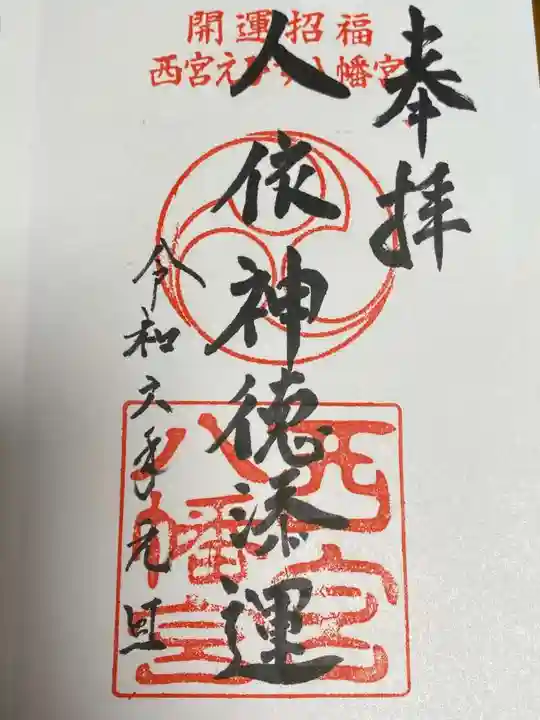 開運招福
西宮えびす八幡宮
奉拝
人依神徳添運
令和六年元旦
西宮
八幡宮